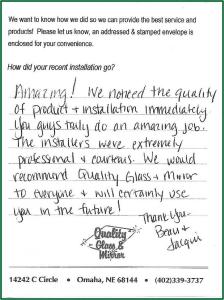 We want to know how we did so we can provide the best service and
products! Please let us know, an addressed & stamped envelope is
enclosed for your convenience.
How did your recent installation go?
Amazing! We noticed the quality
of product + installation immediately
You guys truly do an amazing job.
The installers were extremely
professional & courteous. We would
recommend Quality Glass + Mirror
to everyone & will certainly use
you in the future!
Thank You-
Beau &
Jacqui
Quality
Glass &
Mirror
14242 C Circle • Omaha, NE 68144 • (402)339-3737